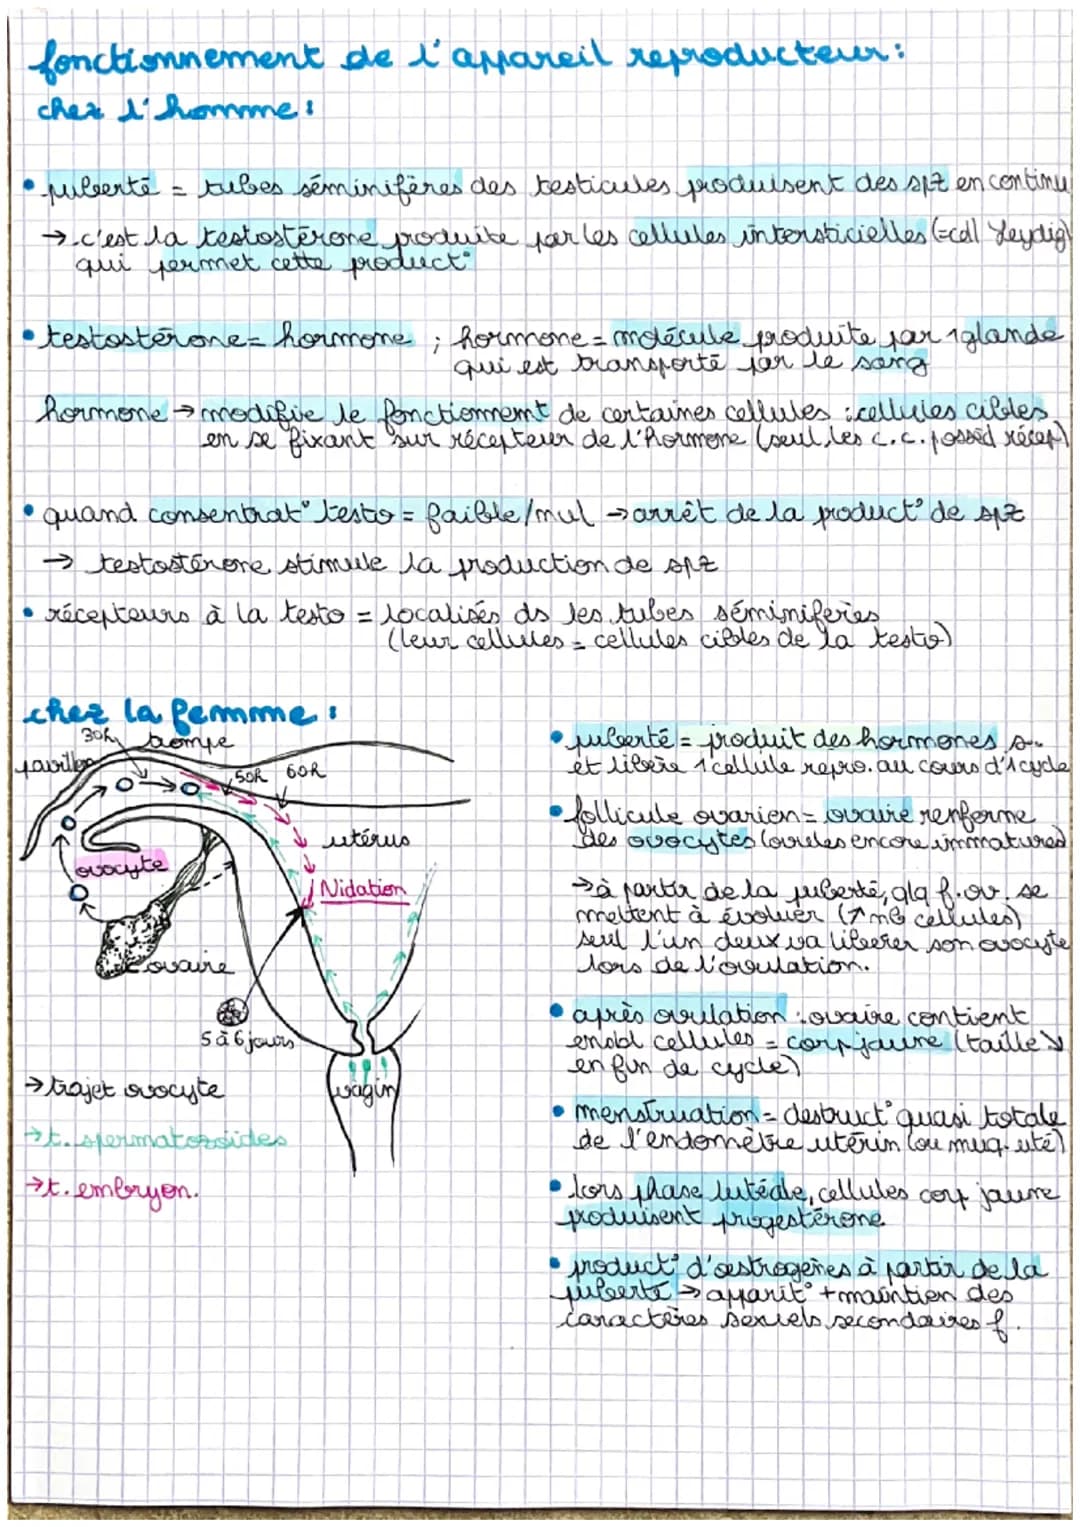 fonctionnement de l'appareil reproducteur:
chez l'homme:
• puberté = tubes séminifères des testicules produisent des spz en continu
→ c'est la testostérone produite par les cellules intersticielles (=cell Leydig)
qui permet cette product°
• testostérone = hormone ; hormone = molécule produite par 1 glande
qui est transporté par le sang
hormone → modifie le fonctionnemt de certaines cellules : cellules cibles
en se fixant sur récepteur de l'hormone (seul, les c.c. possèd récep)
• quand consentrat° testo = faible/nul → arrêt de la product° de spz
→ testostérone stimule la production de spz
• récepteurs à la testo = localisés ds les tubes séminiferies
(leur cellules = cellules cibles de la testo)
chez la femme :
30h trompe
pavillon
50h 60h
utérus
ovocyte
Nidation
ovaire
5 à 6 jours
vagin
→ trajet ovocyte
→ t. spermatozoïdes
→ t. embryon.
• puberté = produit des hormones s..
et libère 1 cellule repro. au cours d'1 cycle
• follicule ovarion = ovaire renferme
des ovocytes (ovules encore immatures)
→ à partir de la puberté, qlq f. ov. se
mettent à évoluer (↗ nb cellules)
seul l'un deux va libérer son ovocyte
lors de l'ovulation.
• après ovulation : ovaire contient
ensbl cellules = corp jaune (taille ↘
en fin de cycle)
• menstruation = destruct° quasi totale
de l'endomètre utérin (ou muq. uté)
• lors phase lutéale, cellules corp jaune
produisent progestérone
• product° d'œstrogènes à partir de la
puberté → apparit° + maintien des
caractères sexuels secondaires f.